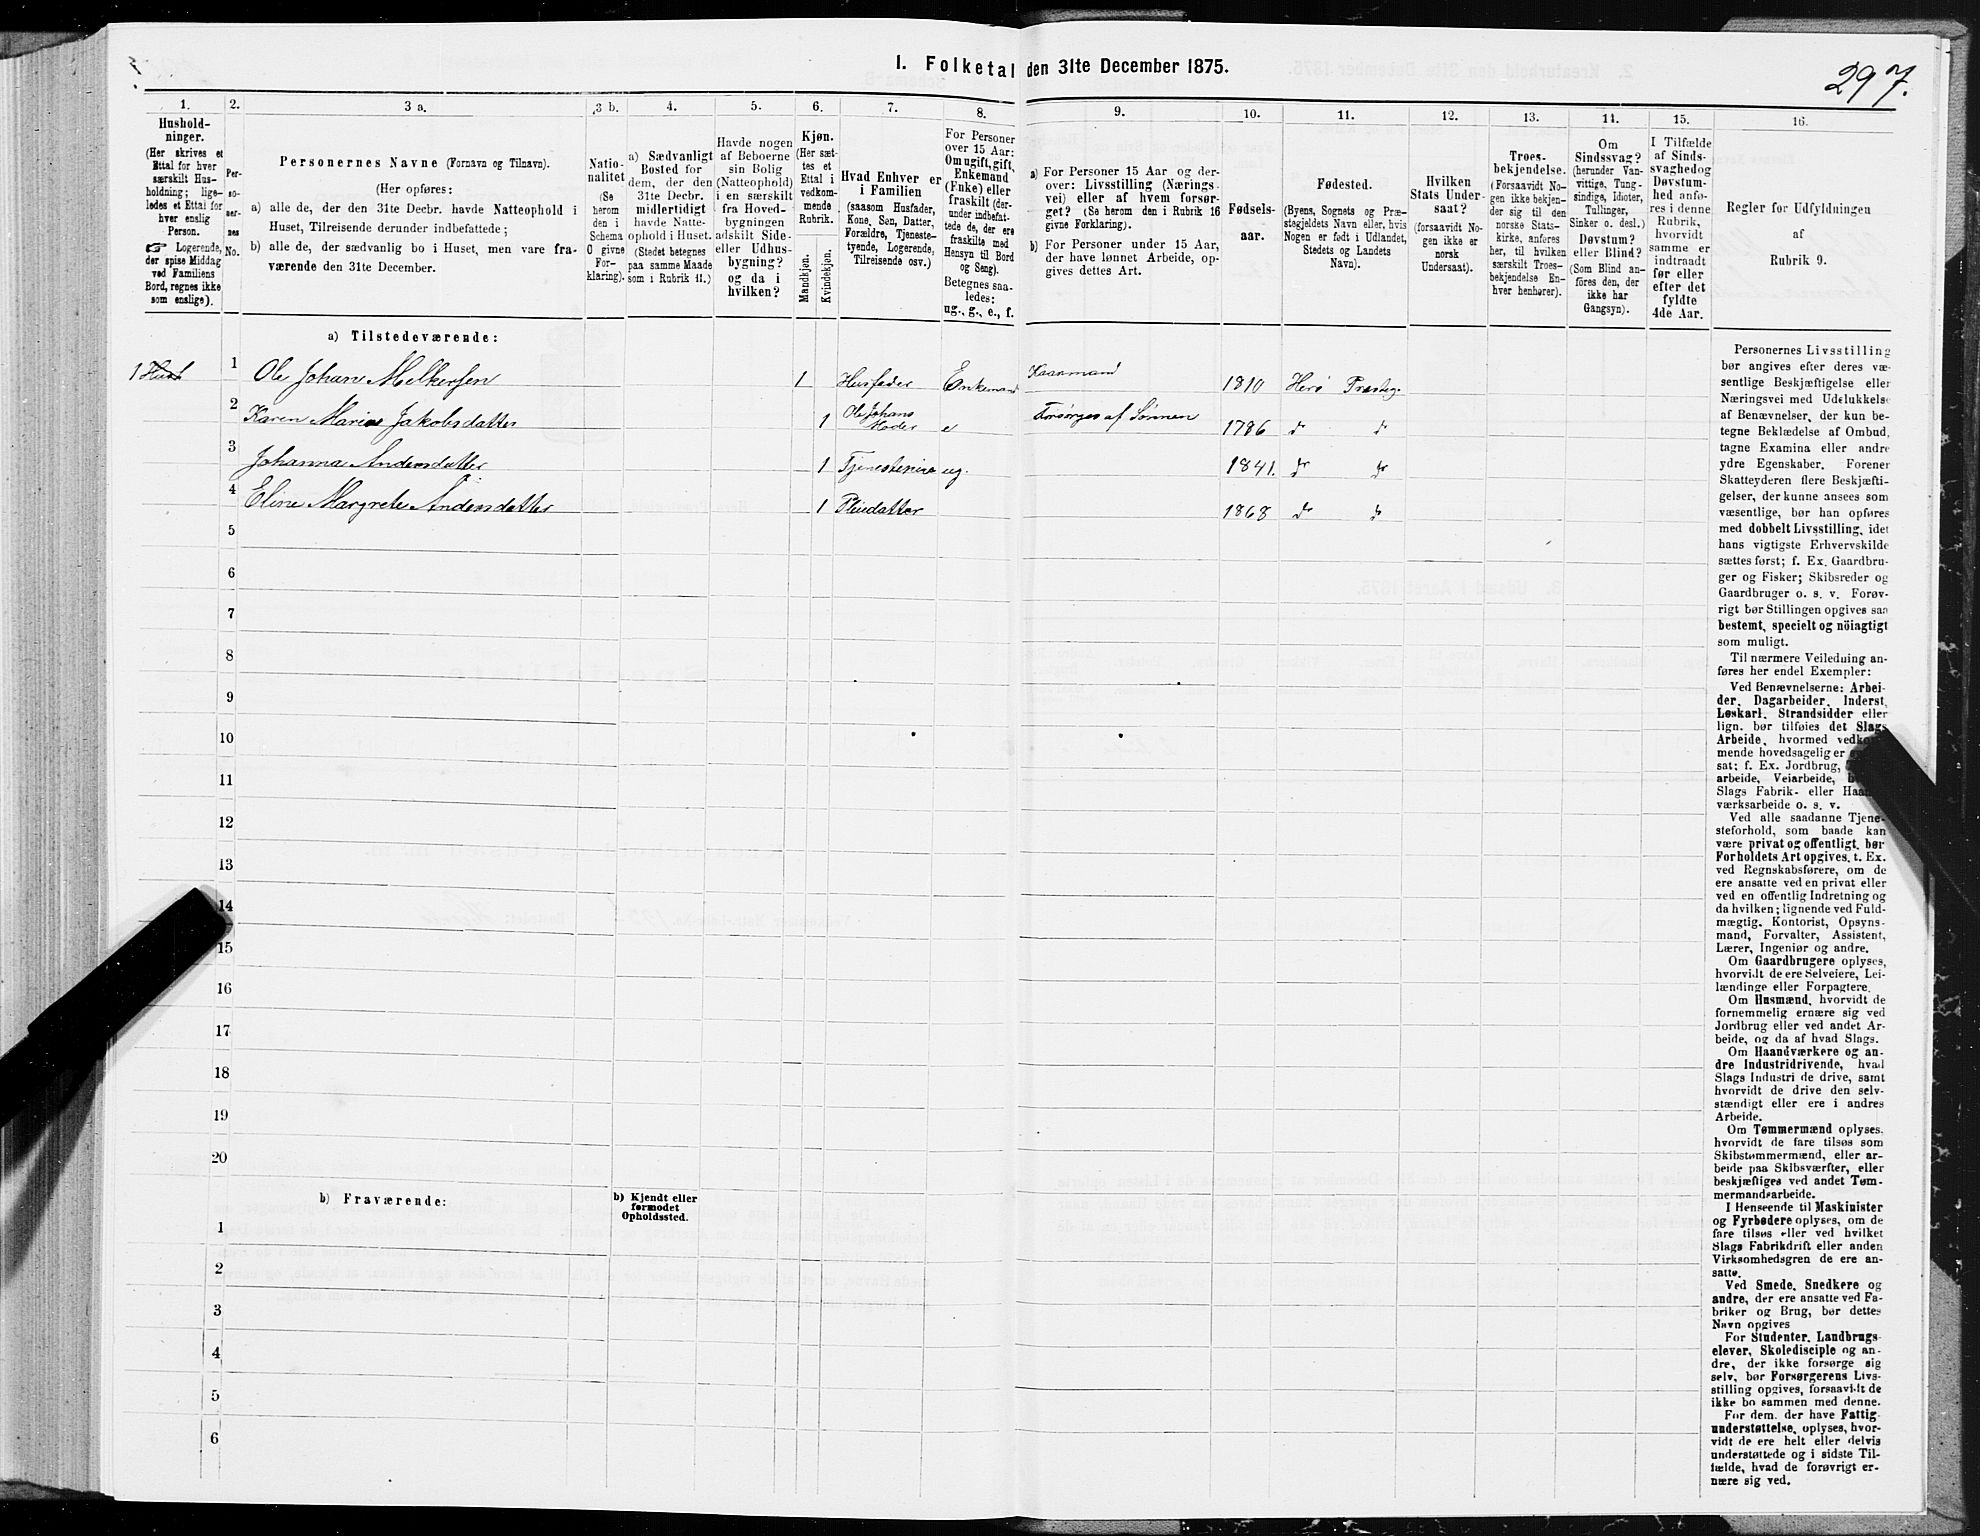 I. Folketal den 31te December 1875.
297.
1. 2. 3 a. 3 b. 4. 5. 6. 7. 8. 9. 10. 11. 12. 13. 14. 15. 16.
Hushold-
ninger.
(Her skrives et
Ettal for hver
særskilt Hus-
holdning; lige-
ledes et Ettal for
hver enslig
Person.
☞ Logerende,
der spise Middag
ved Familiens
Bord, regnes ikke
som enslige).
Per-
so-
ner-
nes
No.
Personernes Navne (Fornavn og Tilnavn).
(Her opføres:
a) alle de, der den 31te Decbr. havde Natteophold i
Huset, Tilreisende derunder indbefattede;
b) alle de, der sædvanlig bo i Huset, men vare fra-
værende den 31te December.
Natio-
nalitet
(Se
herom
den i
Schema
O givne
For-
klaring).
a) Sædvanligt
Bosted for
dem, der den
31te Decbr.
midlertidigt
havde Natte-
ophold i Huset.
(Stedet betegnes
paa samme Maade
som i Rubrik 11.)
Havde nogen
af Beboerne
sin Bolig
(Natteophold)
i en særskilt
fra Hoved-
bygningen
adskilt Side-
eller Udhus-
bygning?
og da i
hvilken?
Kjøn.
(Her sæt-
tes et
Ettal i
vedkom-
mende
Rubrik.
Mandkjøn.
Kvindekjøn.
Hvad Enhver er
i Familien
(saasom Husfader,
Kone, Søn, Datter,
Forældre, Tjeneste-
tyende, Logerende,
Tilreisende osv.)
For Personer
over 15 Aar:
Om ugift, gift,
Enkemand
(Enke) eller
fraskilt (der-
under indbefat-
tede de, der ere
fraskilte med
Hensyn til Bord
og Seng).
Betegnes saa-
ledes:
ug., g., e., f.
a) For Personer 15 Aar og der-
over: Livsstilling (Nærings-
vei) eller af hvem forsør-
get? (Se herom den i Rubrik 16
givne Forklaring).
b) For Personer under 15 Aar,
der have lønnet Arbeide, op-
gives dettes Art.
Fødsels-
aar.
Fødested.
(Byens, Sognets og Præ-
stegjeldets Navn eller, hvis
Nogen er født i Udlandet,
Stedets og Landets
Navn).
Hvilken
Stats Under-
saat?
(forsaavidt No-
gen ikke er
norsk
Undersaat).
Troes-
bekjendelse.
(Forsaavidt No-
gen ikke bekjen-
der sig til den
norske Stats-
kirke, anføres
her, til hvilken
særskilt Troes-
bekjendelse En-
hver henhører).
Om
Sindssvag?
(herunder Van-
vittige, Tung-
sindige, Idioter,
Tullinger,
Sinker o. desl.)
Døvstum?
eller Blind?
(Som Blind an-
føres den, der
ikke har
Gangsyn).
I Tilfælde
af Sinds-
svaghed og
Døvstum-
hed anfø-
res i denne
Rubrik,
hvorvidt
samme er
indtraadt
før eller
efter det
fyldte
4de Aar.
Regler for Udfyldningen
af
Rubrik 9.
a) Tilstedeværende:
1 1 Ole Johan Melkersen 1 Husfader Enkemand 1810 Herø Præsteg.
2 Karen Maria Jakobsdatter 1 Ole Johans Moder e Forsørges af Sønnen 1786 do do
3 Johanna Andersdatter 1 ug. 1841. do do
4 Eline Margrete Andersdatter 1 Pleiedatter 1868 do do
5
6
7
8
9
10
11
12
13
14
15
16
17
18
19
20
b) Fraværende:
b) Kjendt eller
formodet
Opholdssted.
1
2
3
4
5
6
Personernes Livsstilling
bør angives efter deres væ-
sentlige Beskjæftigelse eller
Næringsvei med Udelukkelse
af Benævnelser, der kun be-
tegne Beklædelse af Ombud,
tagne Examina eller andre
ydre Egenskaber. Forener
Skatteyderen flere Beskjæfti-
gelser, der kunne ansees som
væsentlige, bør han opføres
med dobbelt Livsstilling, idet
hans vigtigste Erhvervskilde
sættes først; f. Ex. Gaardbru-
ger og Fisker; Skibsreder og
Gaardbruger o. s. v. Forøv-
rigt bør Stillingen opgives saa
bestemt, specielt og nöiagtigt
som muligt.
Til nærmere Veiledning an-
føres her endel Exempler:
Ved Benævnelserne: Arbei-
der, Dagarbeider, Inderst,
Løskarl, Strandsidder eller
lign. bør tilføies det Slags
Arbeide, hvormed vedkom-
mende hovedsagelig er
sat; f. Ex. Jordbrug,
arbeide, Veiarbeide,
Slags Fabrik- eller
værksarbeide o. s. v.
Ved alle saadanne Tjene-
steforhold, som baade kan
være privat og offentligt, bør
Forholdets Art opgives, t. Ex.
ved Regnskabsførere, om de
ere ansatte ved en privat eller
ved en offentlig Indretning og
da hvilken; lignende ved Fuld-
mægtig, Kontorist, Opsyns-
mand, Forvalter, Assistent,
Lærer, Ingeniør og andre.
Om Gaardbrugere oplyses,
hvorvidt de ere Selveiere, Lei-
lændinge eller Forpagtere.
Om Husmænd, hvorvidt de
fornemmelig ernære sig ved
Jordbrug eller ved andet Ar-
beide, og da af hvad Slags.
Om Haandværkere og an-
dre Industridrivende, hvad
Slags Industri de drive, samt
hvorvidt de drive den selv-
stændigt eller ere i andres
Arbeide.
Om Tømmermænd oplyses,
hvorvidt de fare tilsøs som
Skibstømmermænd, eller ar-
beide paa Skibsværfter, eller
beskjæftiges ved andet Tøm-
mermandsarbeide.
I Henseende til Maskinister
og Fyrbødere oplyses, om de
fare tilsøs eller ved hvilket
Slags Fabrikdrift eller anden
Virksomhedsgren de ere an-
satte.
Ved Smede, Snedkere og
andre, der ere ansatte ved Fa-
briker og Brug, bør dettes
Navn opgives
For Studenter, Landbrugs-
elever, Skoledisciple og an-
dre, der ikke forsørge sig
selv, bør Forsørgerens Livs-
stilling opgives, forsaavidt de
ikke bo sammen med denne.
For dem, der have Fattig-
understøttelse, oplyses, hvor-
vidt de ere helt eller delvis
understøttede og i sidste Til-
fælde, hvad de forøvrigt er-
nære sig ved.